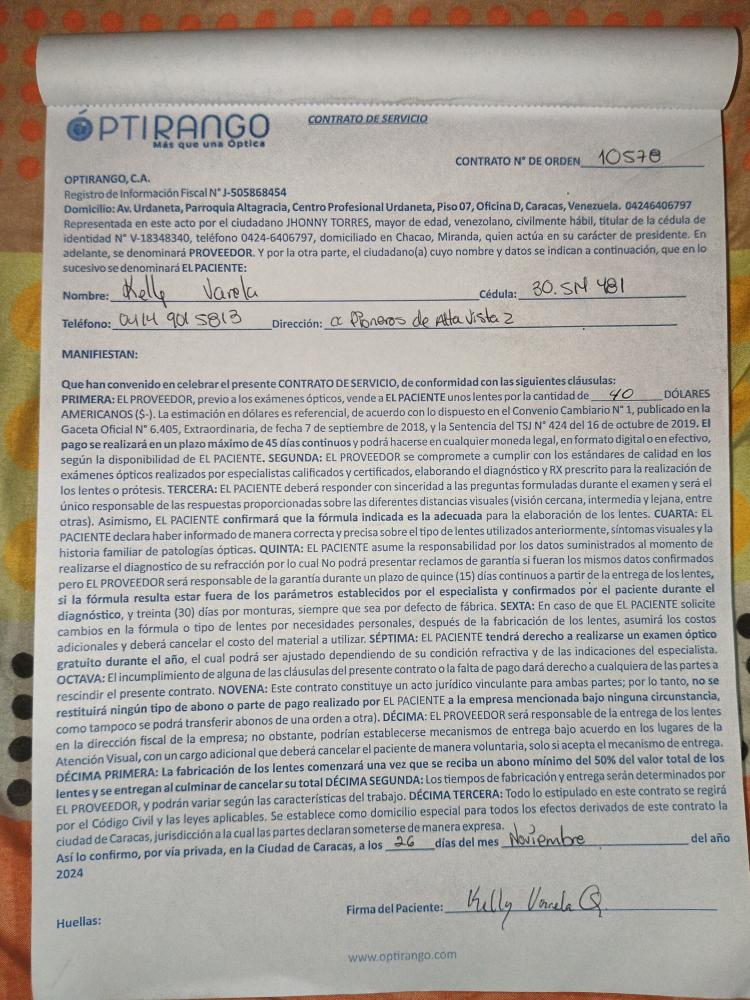 ÓPTIRANGO
Más que una Óptica
CONTRATO DE SERVICIO
CONTRATO N° DE ORDEN 10578
OPTIRANGO, C.A.
Registro de Información Fiscal N° J-505868454
Domicilio: Av. Urdaneta, Parroquia Altagracia, Centro Profesional Urdaneta, Piso 07, Oficina D, Caracas, Venezuela. 04246406797
Representada en este acto por el ciudadano JHONNY TORRES, mayor de edad, venezolano, civilmente hábil, titular de la cédula de
identidad N° V-18348340, teléfono 0424-6406797, domiciliado en Chacao, Miranda, quien actúa en su carácter de presidente. En
adelante, se denominará PROVEEDOR. Y por la otra parte, el ciudadano(a) cuyo nombre y datos se indican a continuación, que en lo
sucesivo se denominará EL PACIENTE:
Nombre: Kelly Varela Cédula: 30. 481
Teléfono: 0414 901 5813 Dirección: Pioneros de Alta Vista 2
MANIFIESTAN:
Que han convenido en celebrar el presente CONTRATO DE SERVICIO, de conformidad con las siguientes cláusulas:
PRIMERA: EL PROVEEDOR, previo a los exámenes ópticos, vende a EL PACIENTE unos lentes por la cantidad de 40 DÓLARES
AMERICANOS ($-). La estimación en dólares es referencial, de acuerdo con lo dispuesto en el Convenio Cambiario N° 1, publicado en la
Gaceta Oficial N° 6.405, Extraordinaria, de fecha 7 de septiembre de 2018, y la Sentencia del TSJ N° 424 del 16 de octubre de 2019. El
pago se realizará en un plazo máximo de 45 días continuos y podrá hacerse en cualquier moneda legal, en formato digital o en efectivo,
según la disponibilidad de EL PACIENTE. SEGUNDA: EL PROVEEDOR se compromete a cumplir con los estándares de calidad en los
exámenes ópticos realizados por especialistas calificados y certificados, elaborando el diagnóstico y RX prescrito para la realización de
los lentes o prótesis. TERCERA: EL PACIENTE deberá responder con sinceridad a las preguntas formuladas durante el examen y será el
único responsable de las respuestas proporcionadas sobre las diferentes distancias visuales (visión cercana, intermedia y lejana, entre
otras). Asimismo, EL PACIENTE confirmará que la fórmula indicada es la adecuada para la elaboración de los lentes. CUARTA: EL
PACIENTE declara haber informado de manera correcta y precisa sobre el tipo de lentes utilizados anteriormente, síntomas visuales y la
historia familiar de patologías ópticas. QUINTA: EL PACIENTE asume la responsabilidad por los datos suministrados al momento de
realizarse el diagnóstico de su refracción por lo cual No podrá presentar reclamos de garantía si fueran los mismos datos confirmados
pero EL PROVEEDOR será responsable de la garantía durante un plazo de quince (15) días continuos a partir de la entrega de los lentes,
si la fórmula resulta estar fuera de los parámetros establecidos por el especialista y confirmados por el paciente durante el
diagnóstico, y treinta (30) días por monturas, siempre que sea por defecto de fábrica. SEXTA: En caso de que EL PACIENTE solicite
cambios en la fórmula o tipo de lentes por necesidades personales, después de la fabricación de los lentes, asumirá los costos
adicionales y deberá cancelar el costo del material a utilizar. SÉPTIMA: EL PACIENTE tendrá derecho a realizarse un examen óptico
gratuito durante el año, el cual podrá ser ajustado dependiendo de su condición refractiva y de las indicaciones del especialista.
OCTAVA: El incumplimiento de alguna de las cláusulas del presente contrato o la falta de pago dará derecho a cualquiera de las partes a
rescindir el presente contrato. NOVENA: Este contrato constituye un acto jurídico vinculante para ambas partes; por lo tanto, no se
restituirá ningún tipo de abono o parte de pago realizado por EL PACIENTE a la empresa mencionada bajo ninguna circunstancia,
como tampoco se podrá transferir abonos de una orden a otra). DÉCIMA: EL PROVEEDOR será responsable de la entrega de los lentes
en la dirección fiscal de la empresa; no obstante, podrían establecerse mecanismos de entrega bajo acuerdo en los lugares de la
Atención Visual, con un cargo adicional que deberá cancelar el paciente de manera voluntaria, solo si acepta el mecanismo de entrega.
DÉCIMA PRIMERA: La fabricación de los lentes comenzará una vez que se reciba un abono mínimo del 50% del valor total de los
lentes y se entregan al culminar de cancelar su total DÉCIMA SEGUNDA: Los tiempos de fabricación y entrega serán determinados por
EL PROVEEDOR, y podrán variar según las características del trabajo. DÉCIMA TERCERA: Todo lo estipulado en este contrato se regirá
por el Código Civil y las leyes aplicables. Se establece como domicilio especial para todos los efectos derivados de este contrato la
ciudad de Caracas, jurisdicción a la cual las partes declaran someterse de manera expresa.
Así lo confirmo, por vía privada, en la Ciudad de Caracas, a los 26 días del mes Noviembre del año
2024
Firma del Paciente: Kelly Varela Q.
Huellas:
www.optirango.com